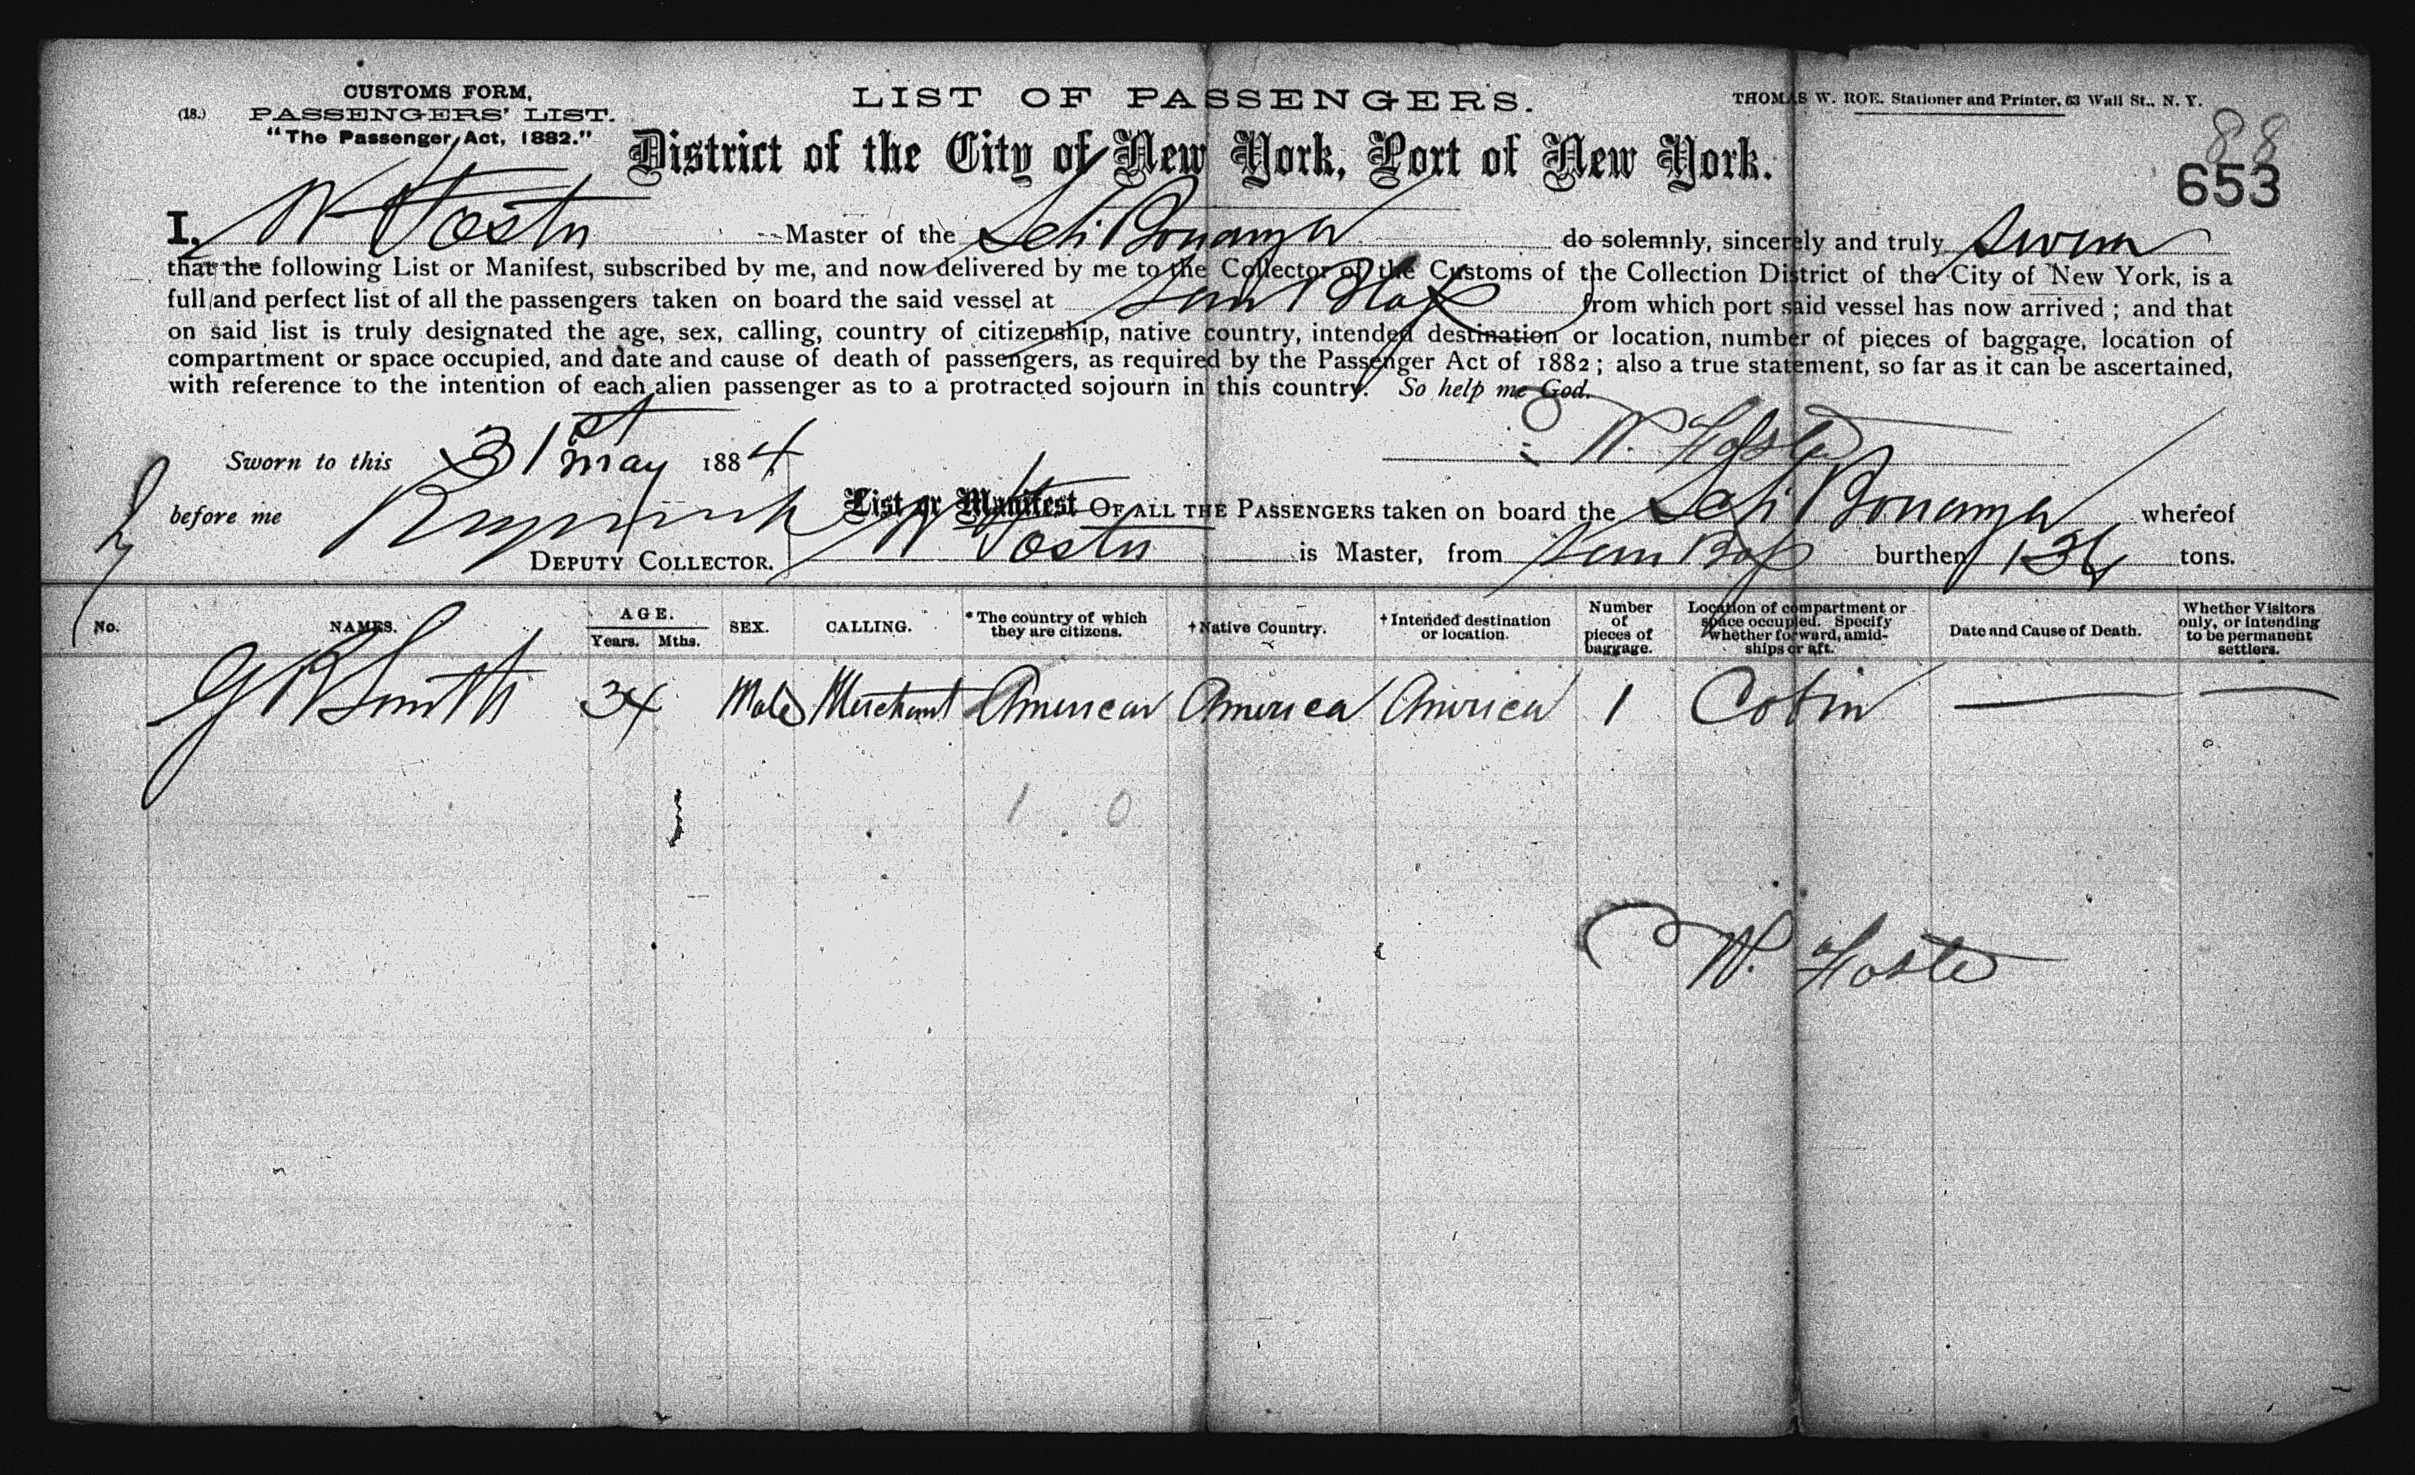 CUSTOMS FORM,
(18.) PASSENGERS' LIST.
"The Passenger Act, 1882."
LIST OF PASSENGERS.
THOMAS W. ROE. Stationer and Printer, 63 Wall St., N. Y.
District of the City of New York, Port of New York.
88
653
I, W Foster Master of the Sch Bonanza do solemnly, sincerely and truly swear
that the following List or Manifest, subscribed by me, and now delivered by me to the Collector of the Customs of the Collection District of the City of New York, is a
full and perfect list of all the passengers taken on board the said vessel at San Blas from which port said vessel has now arrived; and that
on said list is truly designated the age, sex, calling, country of citizenship, native country, intended destination or location, number of pieces of baggage, location of
compartment or space occupied, and date and cause of death of passengers, as required by the Passenger Act of 1882; also a true statement, so far as it can be ascertained,
with reference to the intention of each alien passenger as to a protracted sojourn in this country. So help me God.
Sworn to this 31st may 1884
W. Foster
before me
DEPUTY COLLECTOR.
List or Manifest OF ALL THE PASSENGERS taken on board the Sch Bonanza whereof
W Foster is Master, from San Blas burthen 136 tons.
No. NAMES. AGE. Years. Mths. SEX. CALLING. * The country of which they are citizens. † Native Country. † Intended destination or location. Number of pieces of baggage. Location of compartment or space occupied. Specify whether forward, amidships or aft. Date and Cause of Death. Whether Visitors only, or intending to be permanent settlers.
G B Smith 34 Male Merchant American America America 1 Cabin — —
1 0
W. Foster